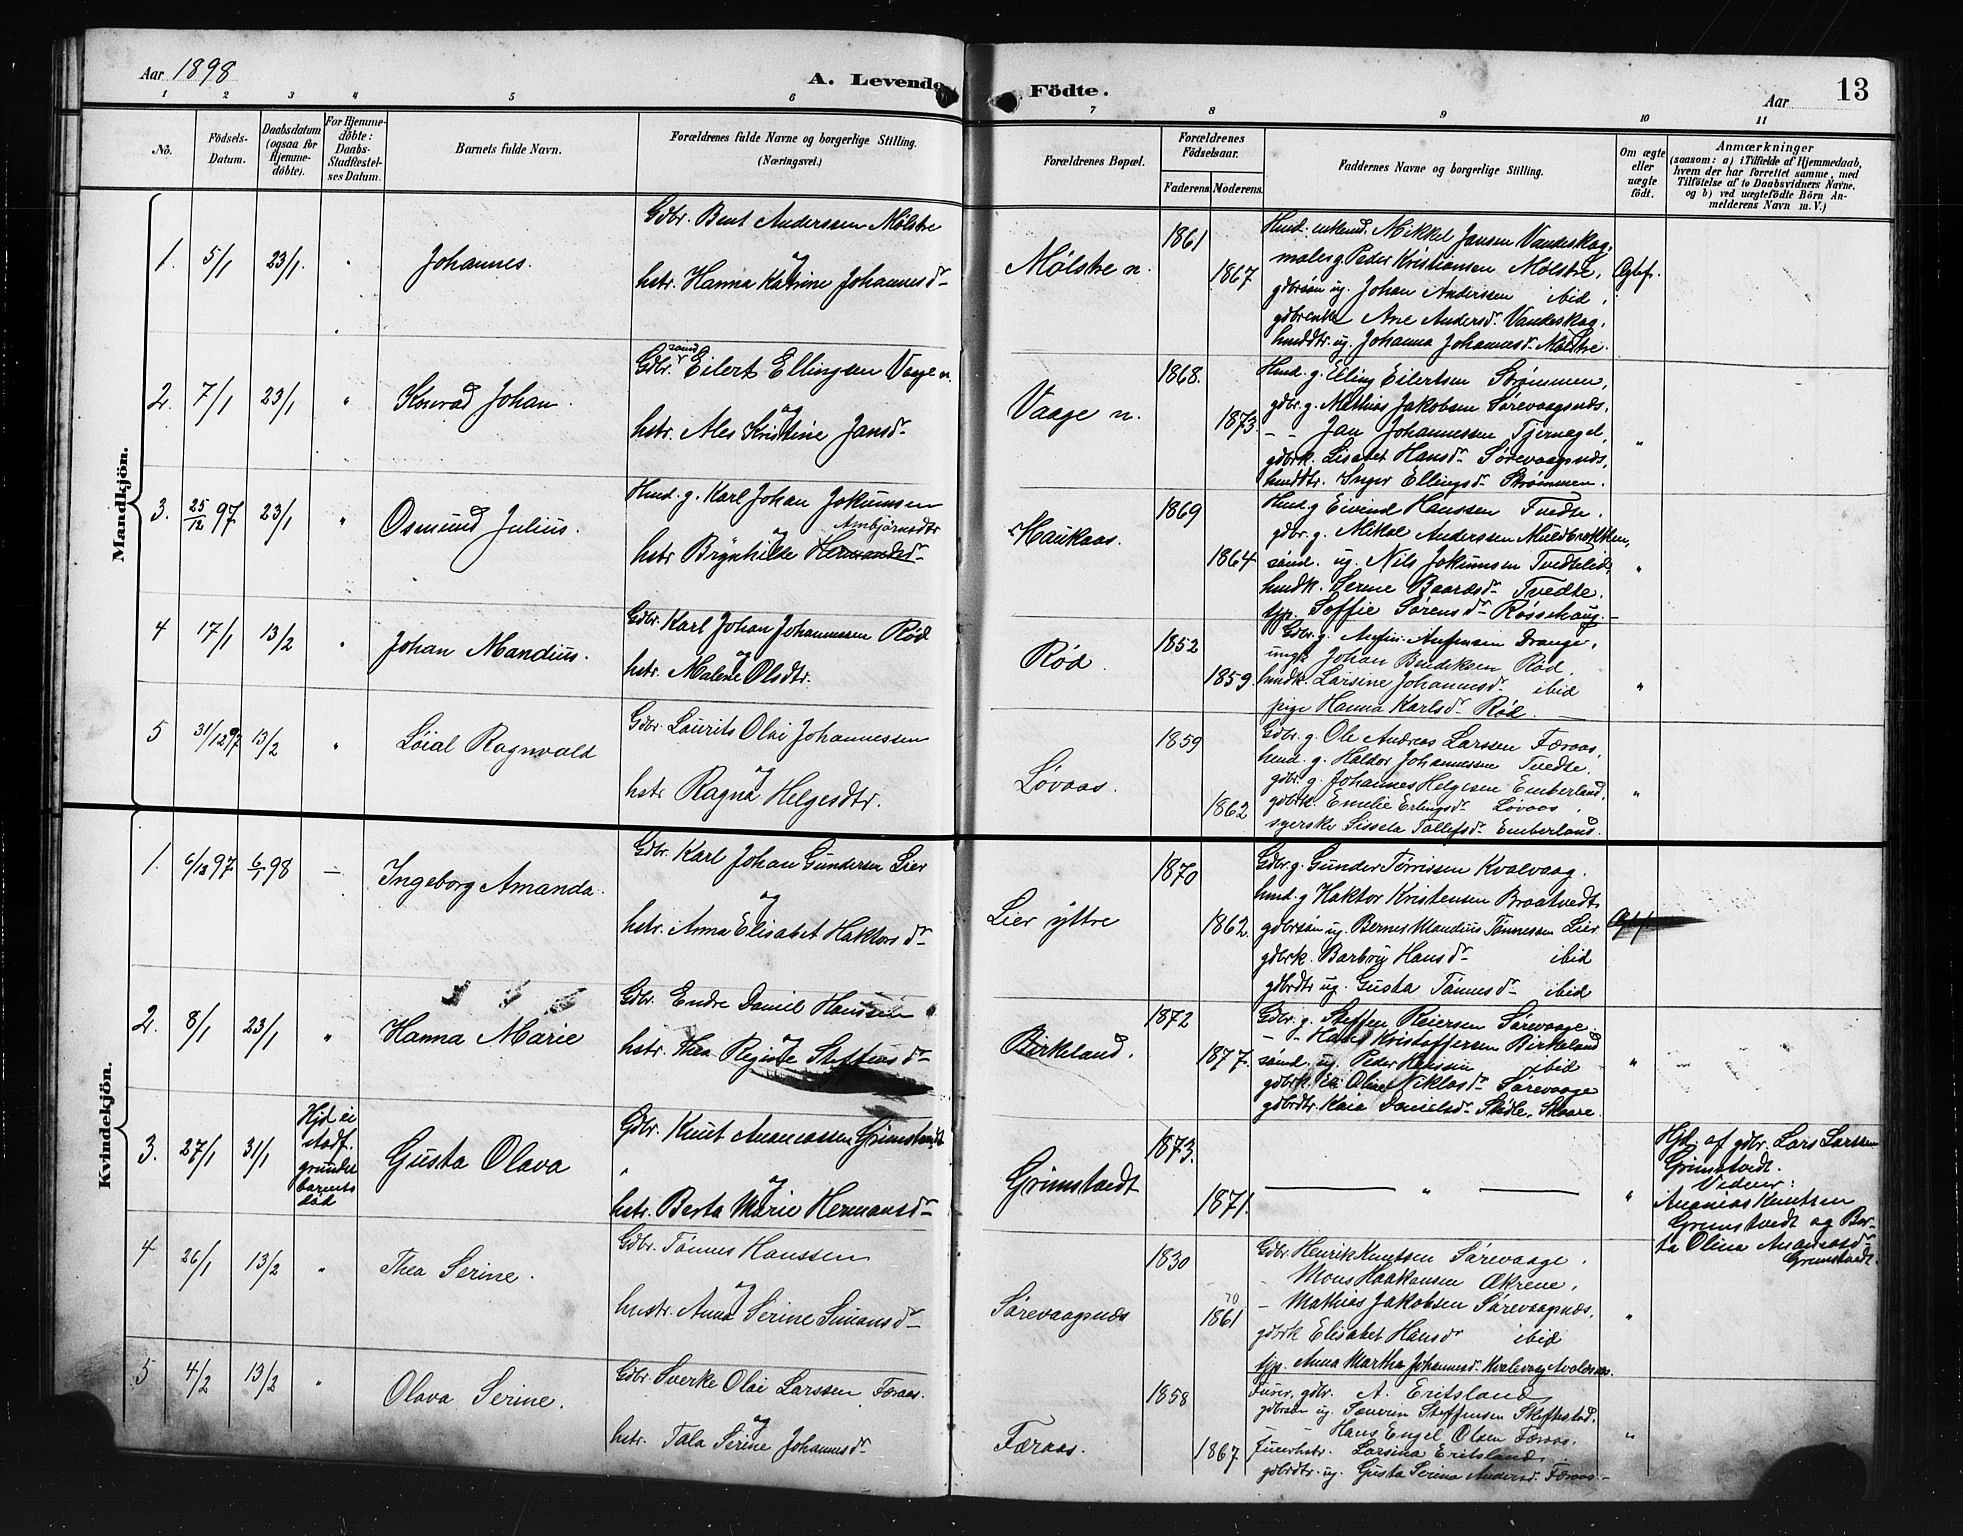 Aar 1898
A. Levende Födte.
Aar 13
1 2 3 4 5 6 7 8 9 10 11
No.
Födsels-Datum.
Daabsdatum (ogsaa for Hjemme-döbte).
For Hjemme-döbte: Daabs-Stadfæstel-ses Datum.
Barnets fulde Navn.
Forældrenes fulde Navne og borgerlige Stilling. (Næringsvei.)
Forældrenes Bopæl.
Forældrenes Födselsaar.
Faderens. Moderens.
Faddernes Navne og borgerlige Stilling.
Om ægte eller uægte födt.
Anmærkninger
(saasom: a) i Tilfælde af Hjemmedaab, hvem der har forrettet samme, med Tilföielse af to Daabsvidners Navne. og b) ved uægtefödte Börn An-melderens Navn m. V.)
Mandkjön.
1. 5/1 23/1 Johannes.
Gdbr. Bent Anderssen Mølstre
og
hstr. Hanna Katrine Johannesdr
Mølstre n. 1861 1867
Husd. enkemd. Mikkel Jansen Vandeskog,
maler g. Peder Kristiansen Mølstre,
gdbrsøn ug. Johan Anderssen ibid,
gdbrenke Ane Andersdr Vandeskog,
husddtr. ug. Johanna Johannesdr Mølstre.
Ægtef.
2. 7/1 23/1 " Konrad Johan.
Gdbr. Eilert Ellingsen Vaage n.
og
hstr. Ales Kristine Jansdr
Vaage n. 1868. 1873.
Husd. g. Elling Eilertsen Strømmen,
gdbr. g. Mathias Jakobsen Sørevaagsnæs,
- - Jan Johannessen Tjernagel,
gdbrk. Lisabet Hansdr Sørevaagsnæs,
husddtr. Inger Ellingsdr Strømmen.
"
3. 25/12 97 23/1 " Osmund Julius.
Husd. g. Karl Johan Jokumsen
og Ambjørnsdtr
hstr Brynhilde
Haukaas. 1869 1864
Husd. g Eivind Hanssen Tvedte.
gdbr. g. Mikal Anderssen
sømd. ug. Nils Jokumsen Tvedtelid,
husdk. Serine Baardsdr Tvedte.
tjp. Soffie Sørensdr Røssehaug.
"
4 17/1 13/2 " Johan Mandius.
Gdbr. Karl Johan Johannessen Rød
og
hstr. Malene Olsdtr.
Rød. 1852 1859.
Gdbr. g. Anfin Anfinsen Drange,
ungk. Johan Bendiksen Rød,
husdk. Larsine Johannesdr ibid
pige Hanna Karlsdr Rød.
"
5 31/12 97 13/2 " Loial Ragnvald
Gdbr. Laurits Olai Johannessen
og
hstr Ragna Helgesdtr.
Løvaas. 1859 1862
Gdbr. g. Ole Andreas Larssen Færaas,
husd. g. Haldor Johannessen Tvedte,
gdbr. g. Johannes Helgesen Emberland,
gdbrk. Emelie Erlingsdr Løvaas,
syerske Sissela Tollefsdr Emberland.
"
Kvindekjön.
1. 6/12 97. 6/1 98 - Ingeborg Amanda.
Gdbr. Karl Johan Gundersen Lier
og
hstr. Anna Elisabet Haktorsdr
Lier yttre 1870 1862.
Gdbr g. Gunder Tørrissen Kvalvaag.
husd. g Haktor Kristensen Braatvedt
gdbrsøn ug. Bernes Mandius Tønnessen Lier
gdbrk. Barbrø Hansdr ibid
gdbrdtr ug. Gusta Tønnesdr ibid
2. 8/1 23/1 " Hanna Marie
Gdbr. Endre Daniel Hanssen
og
hstr. Thea Regine Steffensdr
Birkeland. 1872 1877.
Gdbr. g. Steffen Reiersen Sørevaage.
- - Kristoffersen Birkeland
sømd. ug. Peder Hanssen ibid
gdbrk. Oline Niklasdr Sørevaage
gdbrdtr. Kaia Danielsdr Stødle, Skaare.
"
3. 27/1 31/1 Hjd ei stadf. grundet barnets død Gusta Olava
Gdbr. Knut Ananiassen Grimstvedt
" og
hstr. Berta Marie Hermansdr
Grimstvedt 1873. 1871.
"
"
Hjd. af gdbr. Lars Larssen
Grimstvedt.
Vidner:
Ananias Knutsen
Grimstvedt og Ber-
ta Olina Ananiasdr
Grimstvedt.
4 26/1 13/2 " Thea Serine.
Gdbr. Tønnes Hanssen
og
hustr. Anna Serine Simonsdr
Sørevaagsnæs 1830 1861 70
Gdbr. Henrik Knutsen Sørevaage,
- Mons Haakonsen Økrene,
- Mathias Jakobsen Sørevaagsnæs,
gdbrk Elisabet Hansdr ibid
tjp. Anna Martha Johannesdr Kvalevaag Avaldsnæs.
"
5 4/2 13/2 " Olava Serine.
Gdbr. Sverke Olai Larssen Færaas.
og
hstr. Tala Serine Johannesdr
Færaas. 1858 1867
gdbr. A. Eritsland
gdbrsøn ug. Søverin Steffensen Skiftestad.
- - Hans Engel Olsen Færaas.
Larsina Eritsland
gdbrdtr. ug. Gusta Serina Andersdr Færaas.
"